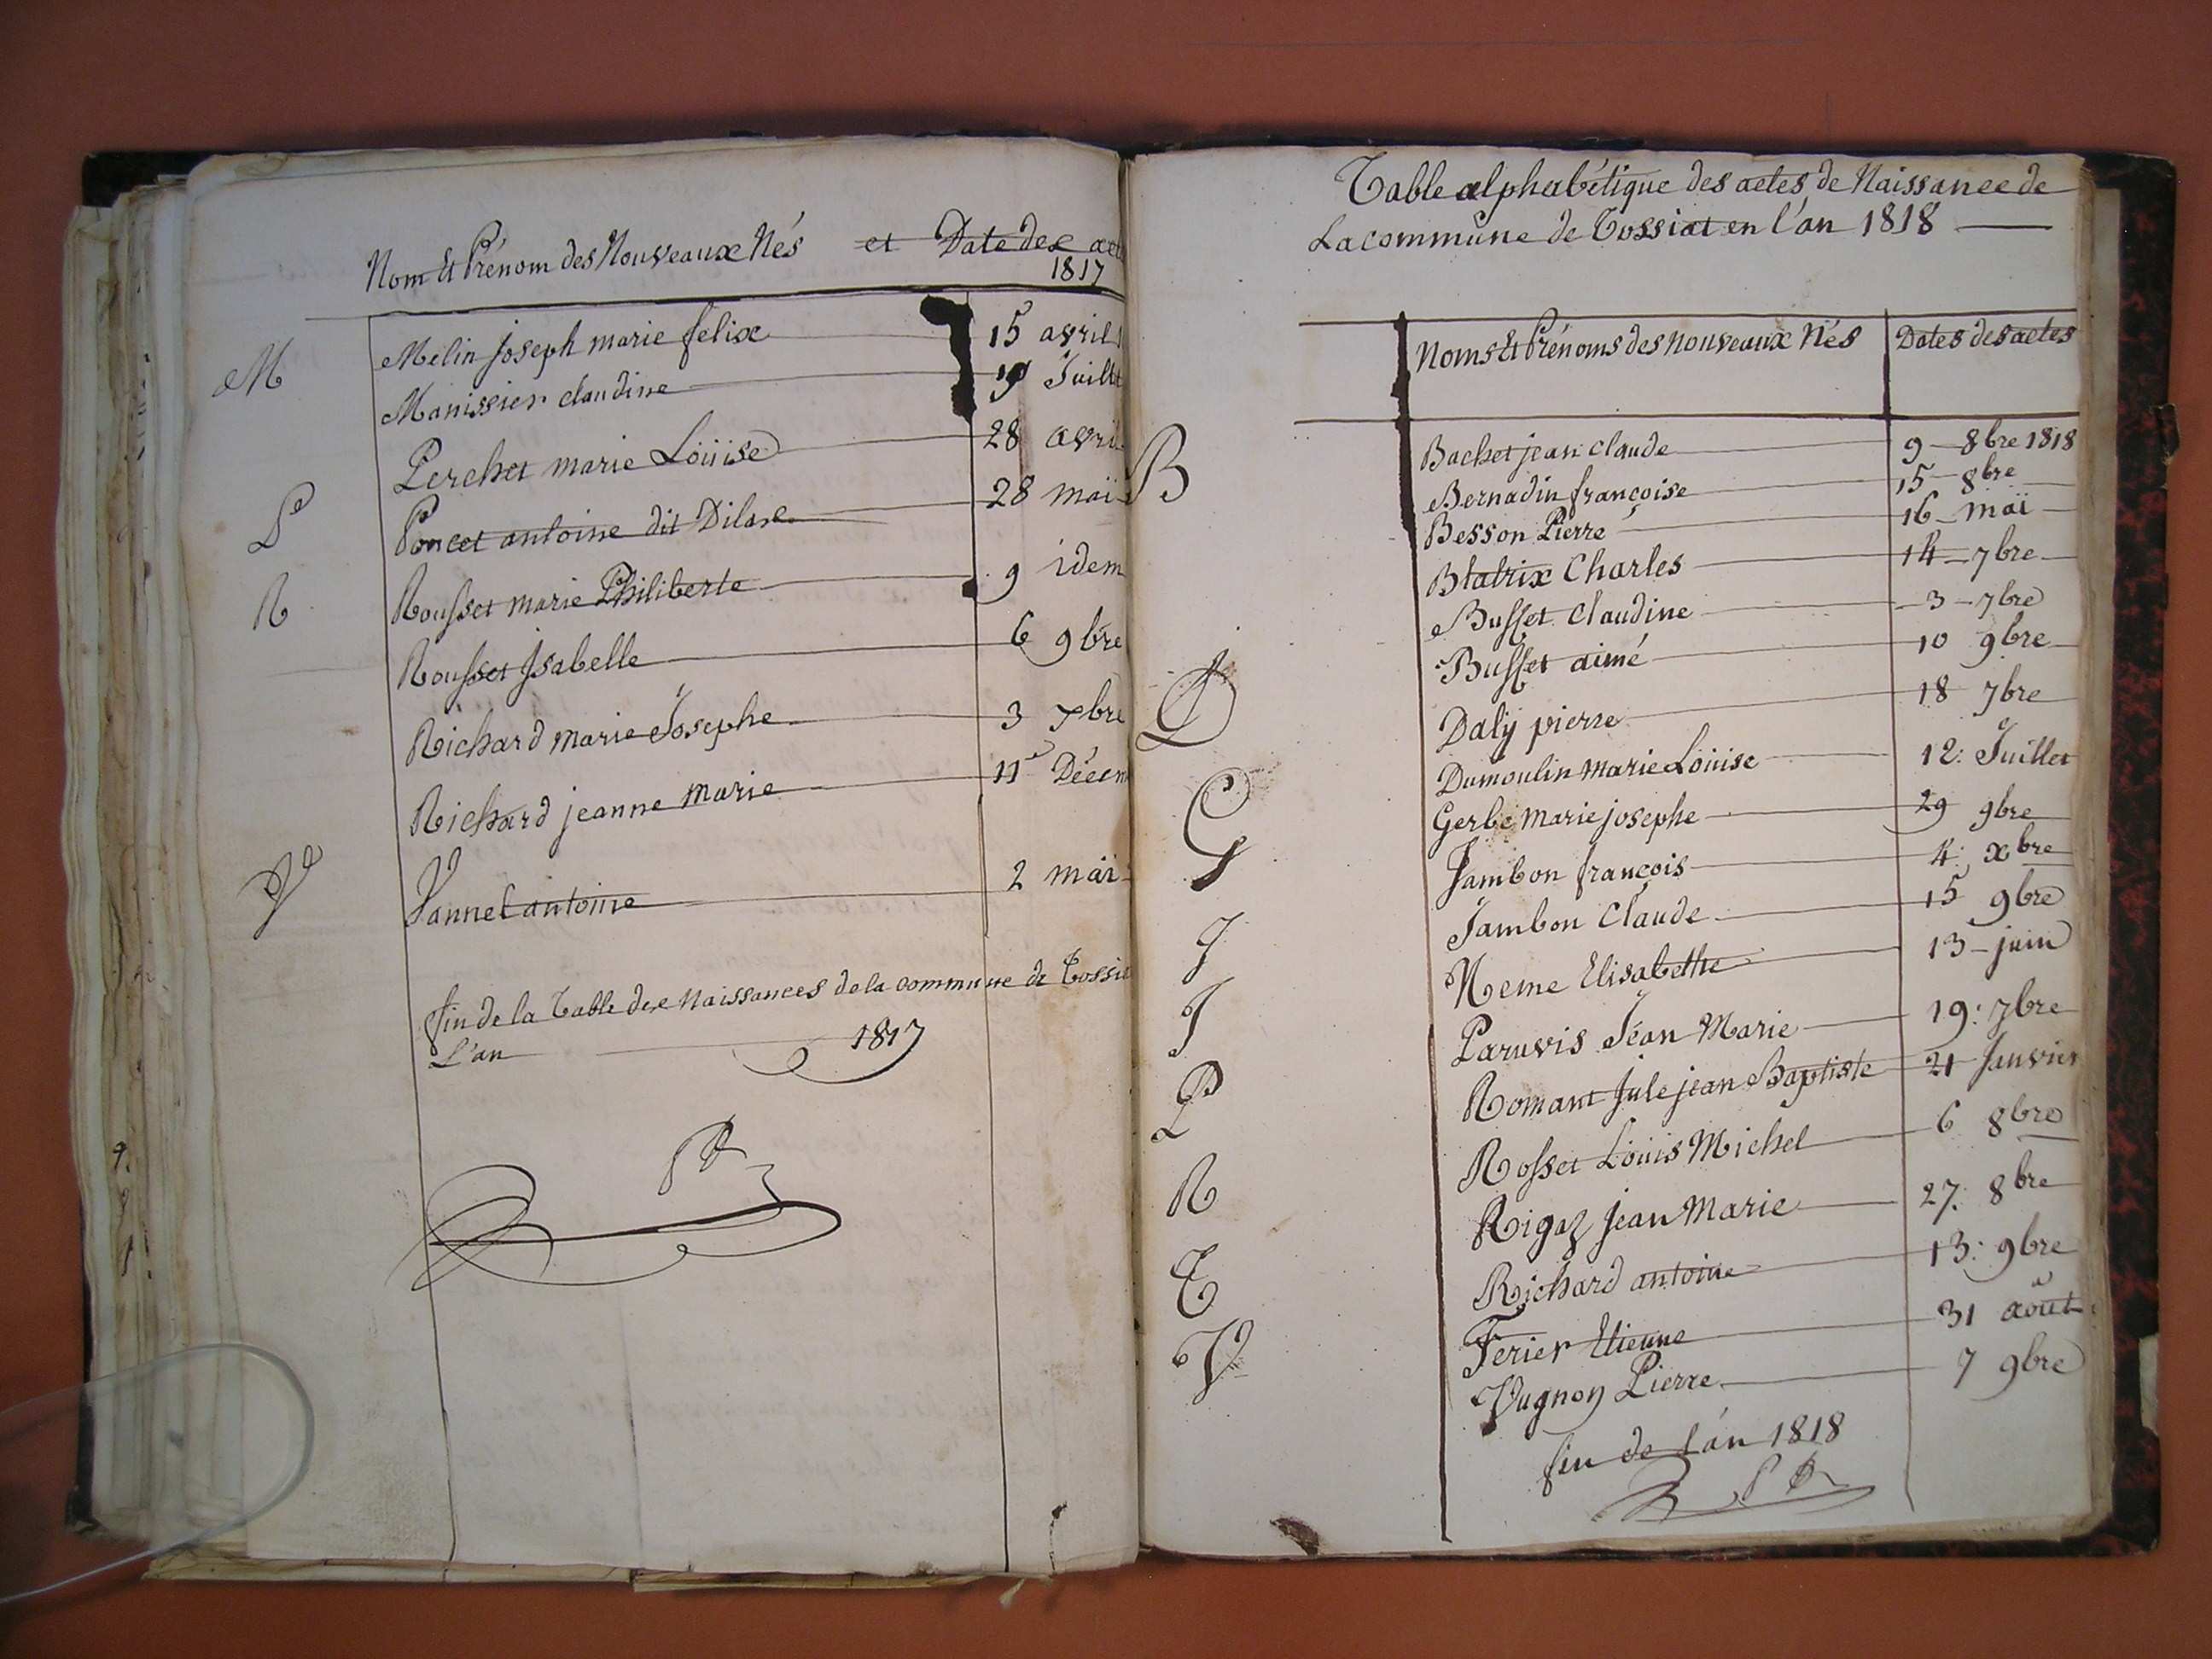 Nom Et Prénom des Nouveaux Nés et Date des
1817
M
Melin joseph marie felix 15 avril
Manissier claudine 19 Juillet
Perchet marie Loüise 28 avril
P
Poncet antoine dit Dilare 28 maï
R
Rousset marie Philiberte 9 idem
Rousset Isabelle 6 9bre
Richard marie Josephe 3 7bre
Richard jeanne marie 11 Décem
V
Vannet antoine 2 maï
fin de la Table des Naissances de la commune de Tossia
L'an 1817
Table alphabétique des actes de Naissance de
La commune de Tossiat en l'án 1818
Noms Et Prénoms des nouveaux Nés Dates des actes
B
Bachet jean claude 9 8bre 1818
Bernadin françoise 15 8bre
Besson Pierre 16 maï
Blatrix Charles 14 7bre
Busset Claudine 3 7bre
Busset aimé 10 9bre
D
Daly pierre 18 7bre
Dumoulin marie Loüise 12: Juillet
G
Gerbe marie josephe 29 9bre
Jambon françois 4: xbre
J
Jambon Claude 15 9bre
Neme Elisabethe 13 juin
J
Paruvis Jéan Marie 19: 7bre
P
Romant Jule jean Baptiste 21 Janvier
Rosset Loüis Michel 6 8bre
R
Rigaz Jean Marie 27. 8bre
Richard antoine 13: 9bre
T
Ferier Etienne 31 août
V
Vugnon Pierre 7 9bre
fin de l'án 1818